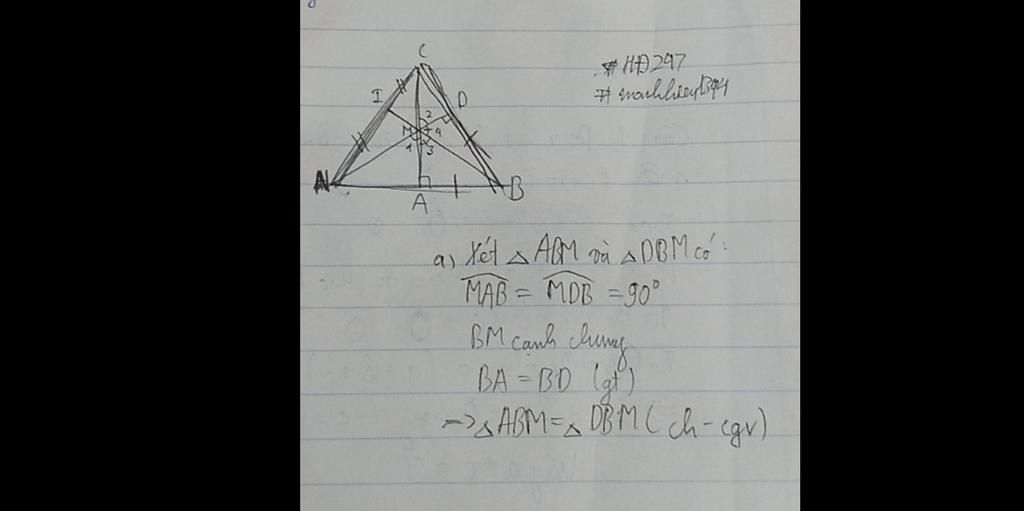 #HĐ247
C
I
D
M
2
4
1
3
N
A
B
a) Xét △ABM và △DBM có:
MAB = MDB = 90°
BM cạnh chung
BA = BD (gt)
=> △ABM = △DBM (ch - cgv)